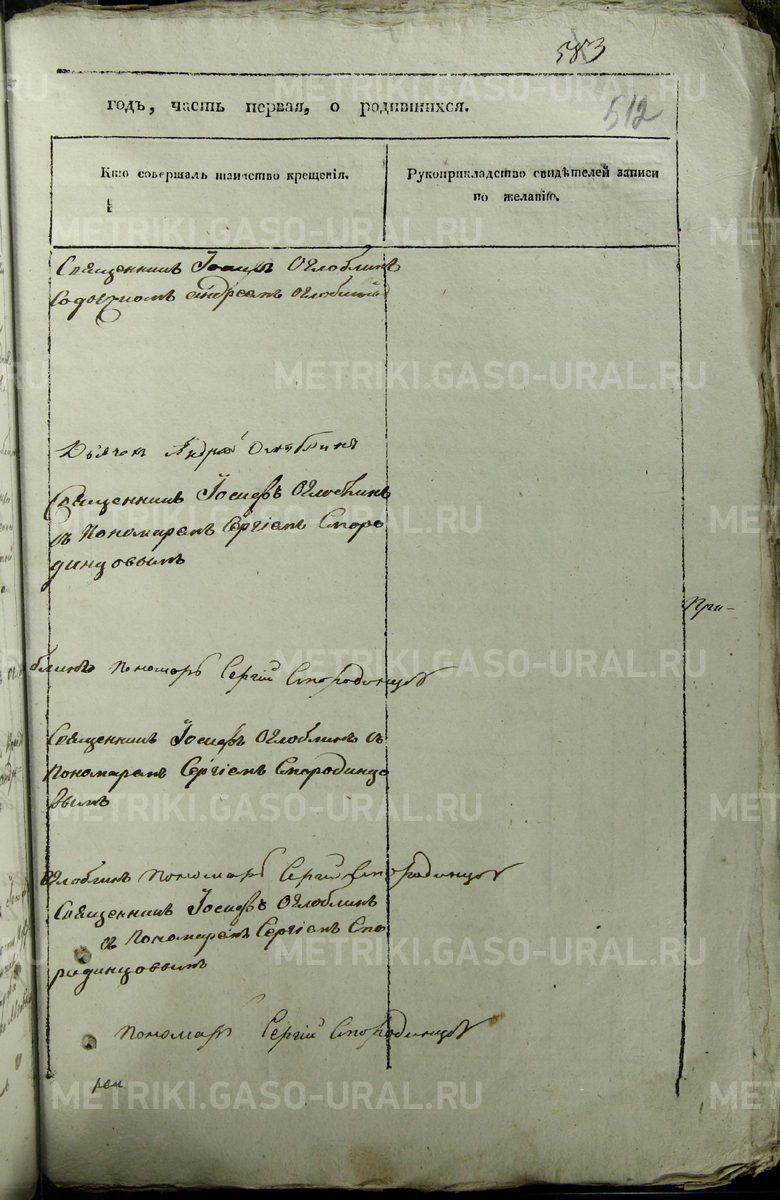 583
512
годъ, часть первая, о родившихся.
Кто совершалъ таинство крещенія.
Рукоприкладство свидѣтелей записи
по желанію.
Священникъ Іосифъ Оглоблинъ
Андреемъ Оглоблинымъ
Дьячек Андрей Оглоблинъ
Священникъ Іосифъ Оглоблинъ
съ Пономаремъ Сергіемъ Сморо
динцовымъ
При-
блинъ Пономарь Сергій Смородинцов
Священникъ Іосифъ Оглоблинъ съ
Пономаремъ Сергіемъ Смородинцо
вымъ
Оглоблинъ Пономарь Сергій Смородинцов
Священникъ Іосифъ Оглоблинъ
съ Пономаремъ Сергіемъ Смо
родинцовымъ
Пономарь Сергій Смородинцов
METRIKI.GASO-URAL.RU